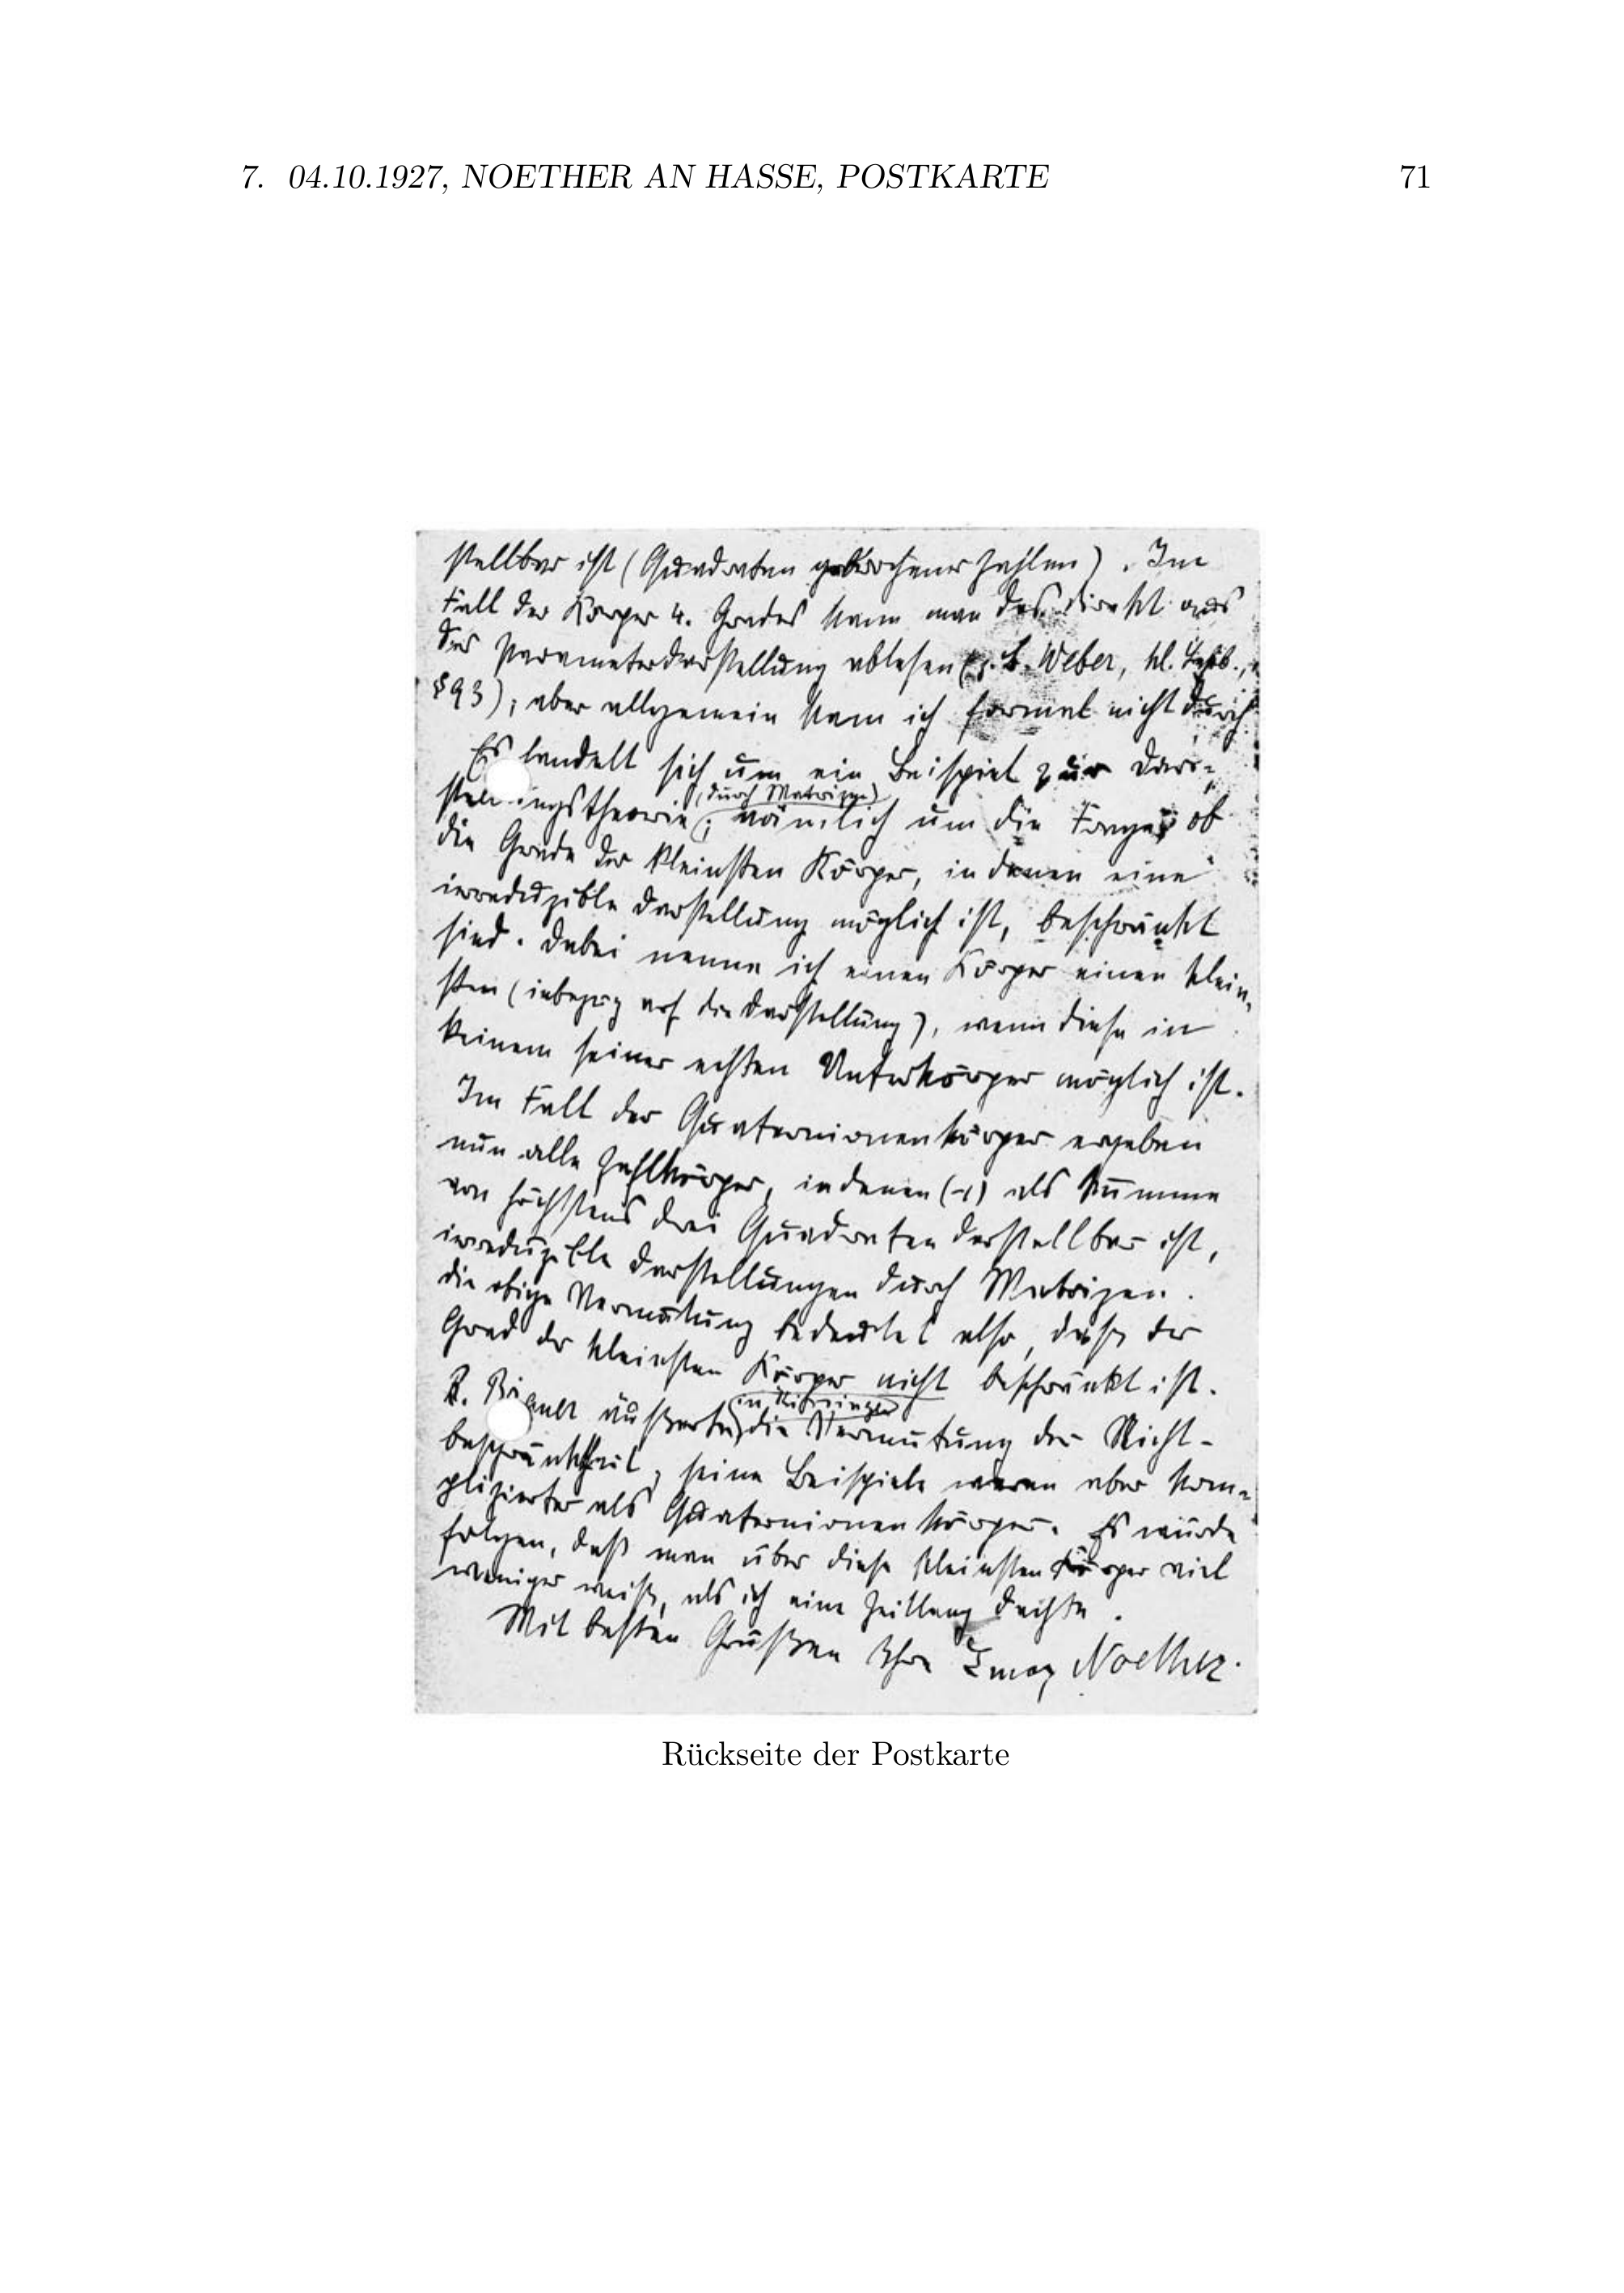 7. 04.10.1927, NOETHER AN HASSE, POSTKARTE 71
stellbar ist (Quadraten gebrochener Zahlen). Im
Fall der Körper 4. Grades kann man das direkt aus
der Parameterdarstellung ablesen (z. B. Weber, kl. Lehrb.,
§93); aber allgemein kam ich formal nicht durch.
Es handelt sich um ein Beispiel zur Dar-
stellungstheorie (durch Matrizen); nämlich um die Frage, ob
die Grade der kleinsten Körper, in denen eine
irreduzible Darstellung möglich ist, beschränkt
sind. Dabei nenne ich einen Körper einen klein-
sten (inbezug auf die Darstellung), wenn diese in
keinem seiner echten Unterkörper möglich ist.
Im Fall der Quaternionenkörper ergeben
nun alle Zahlkörper, in denen (-1) als Summe
von höchstens drei Quadraten darstellbar ist,
irreduzible Darstellungen durch Matrizen.
Die obige Vermutung bedeutet also, daß der
Grad der kleinsten Körper nicht beschränkt ist.
R. Brauer äußerte (in Kissingen) die Vermutung der Nicht-
beschränktheit, seine Beispiele waren aber kom-
plizierter als Quaternionenkörper. Es würde
folgen, daß man über diese kleinsten Körper viel
weniger weiß, als ich eine Zeitlang dachte.
Mit besten Grüßen Ihre Emmy Noether.
Rückseite der Postkarte